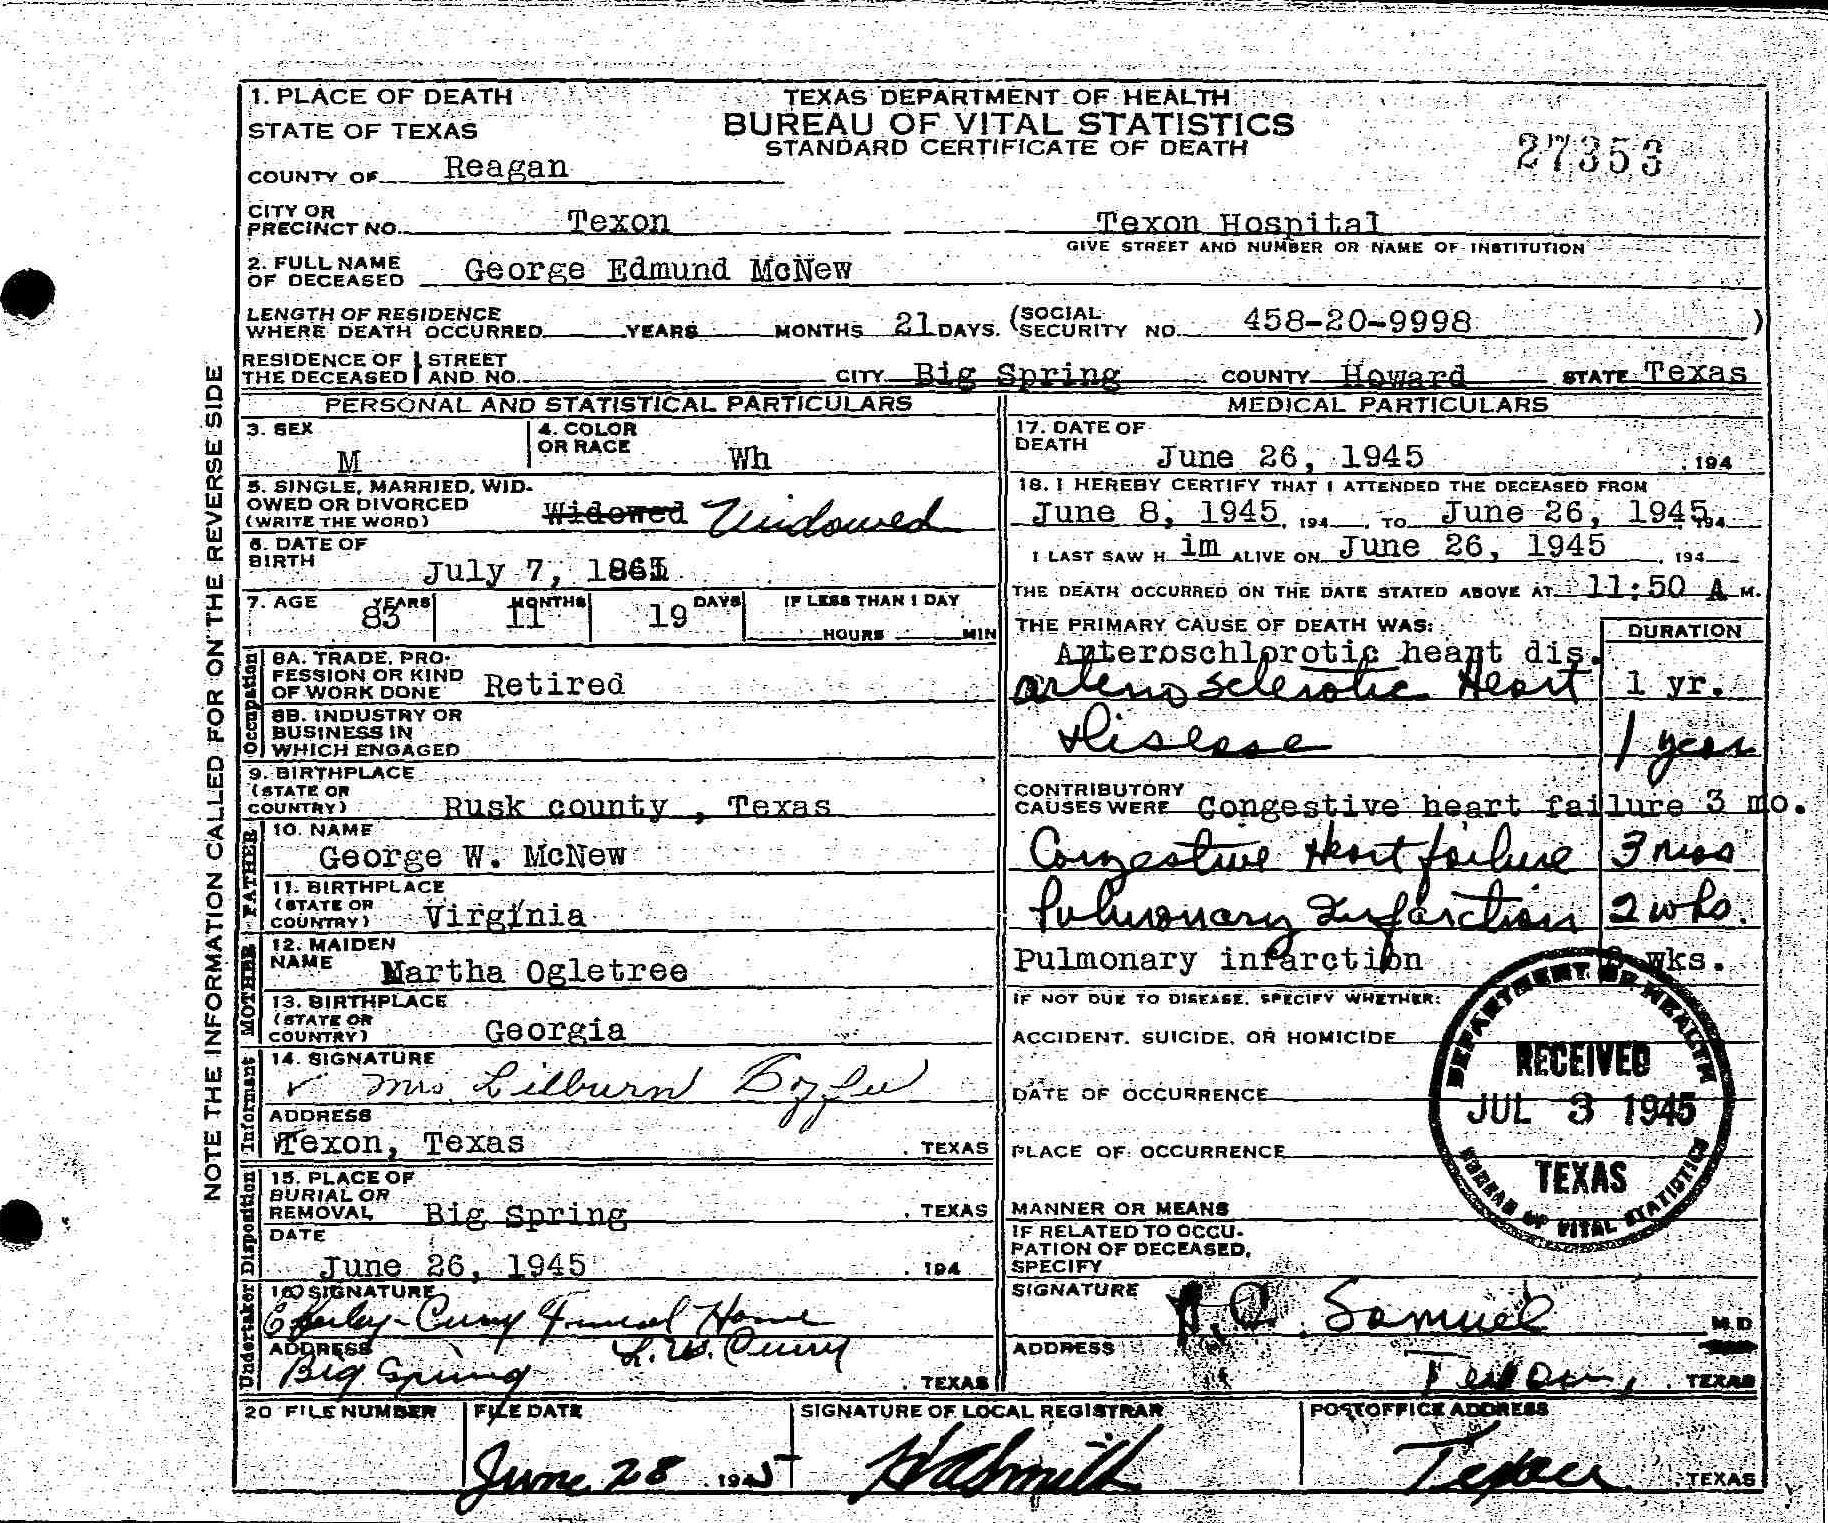 NOTE THE INFORMATION CALLED FOR ON THE REVERSE SIDE
1. PLACE OF DEATH
STATE OF TEXAS
COUNTY OF Reagan
TEXAS DEPARTMENT OF HEALTH
BUREAU OF VITAL STATISTICS
STANDARD CERTIFICATE OF DEATH
27353
CITY OR
PRECINCT NO. Texon Texon Hospital
GIVE STREET AND NUMBER OR NAME OF INSTITUTION
2. FULL NAME
OF DECEASED George Edmund McNew
LENGTH OF RESIDENCE
WHERE DEATH OCCURRED YEARS MONTHS 21 DAYS. (SOCIAL
SECURITY NO. 458-20-9998 )
RESIDENCE OF
THE DECEASED
STREET
AND NO. CITY Big Spring COUNTY Howard STATE Texas
PERSONAL AND STATISTICAL PARTICULARS
3. SEX
M
4. COLOR
OR RACE Wh
5. SINGLE, MARRIED, WID-
OWED OR DIVORCED
(WRITE THE WORD) Widowed Widowed
6. DATE OF
BIRTH July 7, 1861
7. AGE YEARS 83 MONTHS 11 DAYS 19 IF LESS THAN 1 DAY
HOURS MIN
Occupation
8A. TRADE, PRO-
FESSION OR KIND
OF WORK DONE Retired
8B. INDUSTRY OR
BUSINESS IN
WHICH ENGAGED
9. BIRTHPLACE
(STATE OR
COUNTRY) Rusk county , Texas
FATHER
10. NAME
George W. McNew
11. BIRTHPLACE
(STATE OR
COUNTRY) Virginia
MOTHER
12. MAIDEN
NAME Martha Ogletree
13. BIRTHPLACE
(STATE OR
COUNTRY) Georgia
Informant
14. SIGNATURE
✓ Mrs. Lilburn
ADDRESS
Texon, Texas . TEXAS
Disposition
15. PLACE OF
BURIAL OR
REMOVAL Big Spring . TEXAS
DATE
June 26, 1945 . 194
Undertaker
16. SIGNATURE
Eberley-Curry Funeral Home
ADDRESS L. W. Curry
Big Spring . TEXAS
MEDICAL PARTICULARS
17. DATE OF
DEATH June 26, 1945 . 194
18. I HEREBY CERTIFY THAT I ATTENDED THE DECEASED FROM
June 8, 1945, 194 , TO June 26, 1945, 194
I LAST SAW H im ALIVE ON June 26, 1945 , 194
THE DEATH OCCURRED ON THE DATE STATED ABOVE AT 11:50 A M.
THE PRIMARY CAUSE OF DEATH WAS: DURATION
Anteroschlorotic heart dis.
arterio sclerotic Heart 1 yr.
Disease 1 year
CONTRIBUTORY
CAUSES WERE Congestive heart failure 3 mo.
Congestive Heart failure 3 mos
Pulmonary Infarction 2 wks.
Pulmonary infarction wks.
IF NOT DUE TO DISEASE, SPECIFY WHETHER:
ACCIDENT, SUICIDE, OR HOMICIDE
DATE OF OCCURRENCE
PLACE OF OCCURRENCE
MANNER OR MEANS
IF RELATED TO OCCU-
PATION OF DECEASED,
SPECIFY
DEPARTMENT OF HEALTH
RECEIVED
JUL 3 1945
TEXAS
BUREAU OF VITAL STATISTICS
SIGNATURE Samuel M.D.
ADDRESS Texon, . TEXAS
20 FILE NUMBER
FILE DATE
June 28 , 1945
SIGNATURE OF LOCAL REGISTRAR
H A Smith
POSTOFFICE ADDRESS
Texon TEXAS